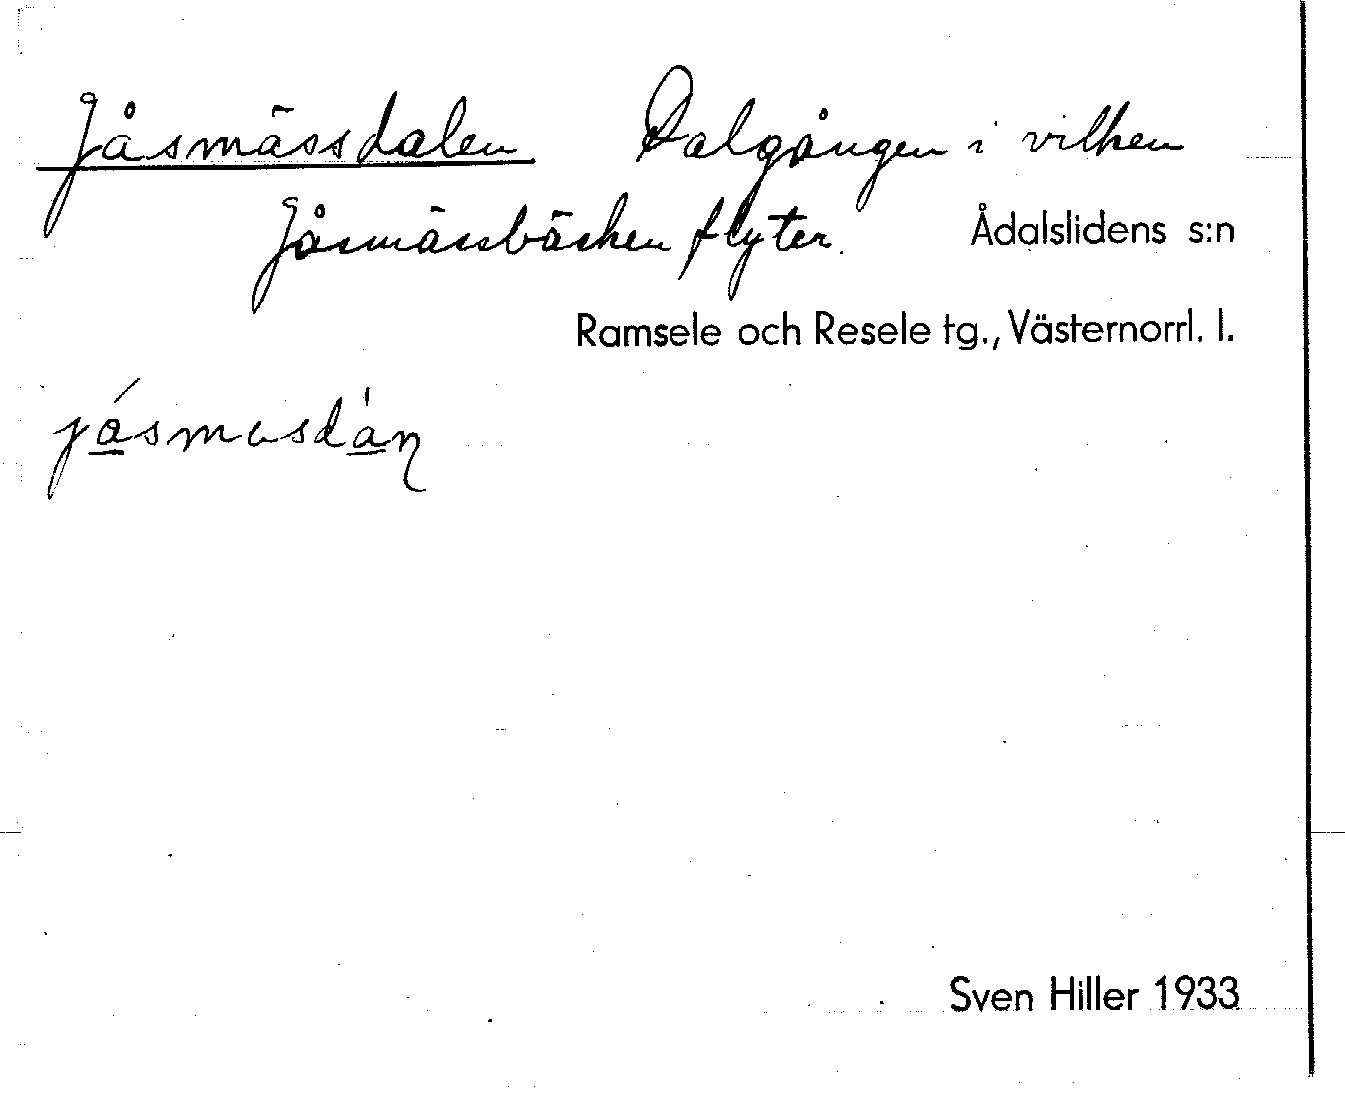 Jåsmässdalen Dalgången i vilken
Jåsmässbäcken flyter.
Ådalslidens s:n
Ramsele och Resele tg., Västernorrl. l.
Sven Hiller 1933